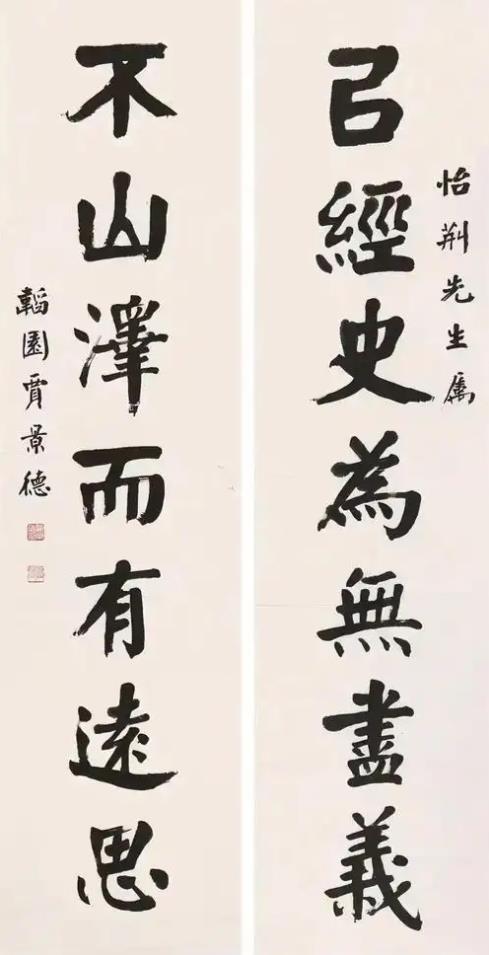 怡荆先生属
㠯經史為無盡義
不山澤而有遠思
韜園賈景德